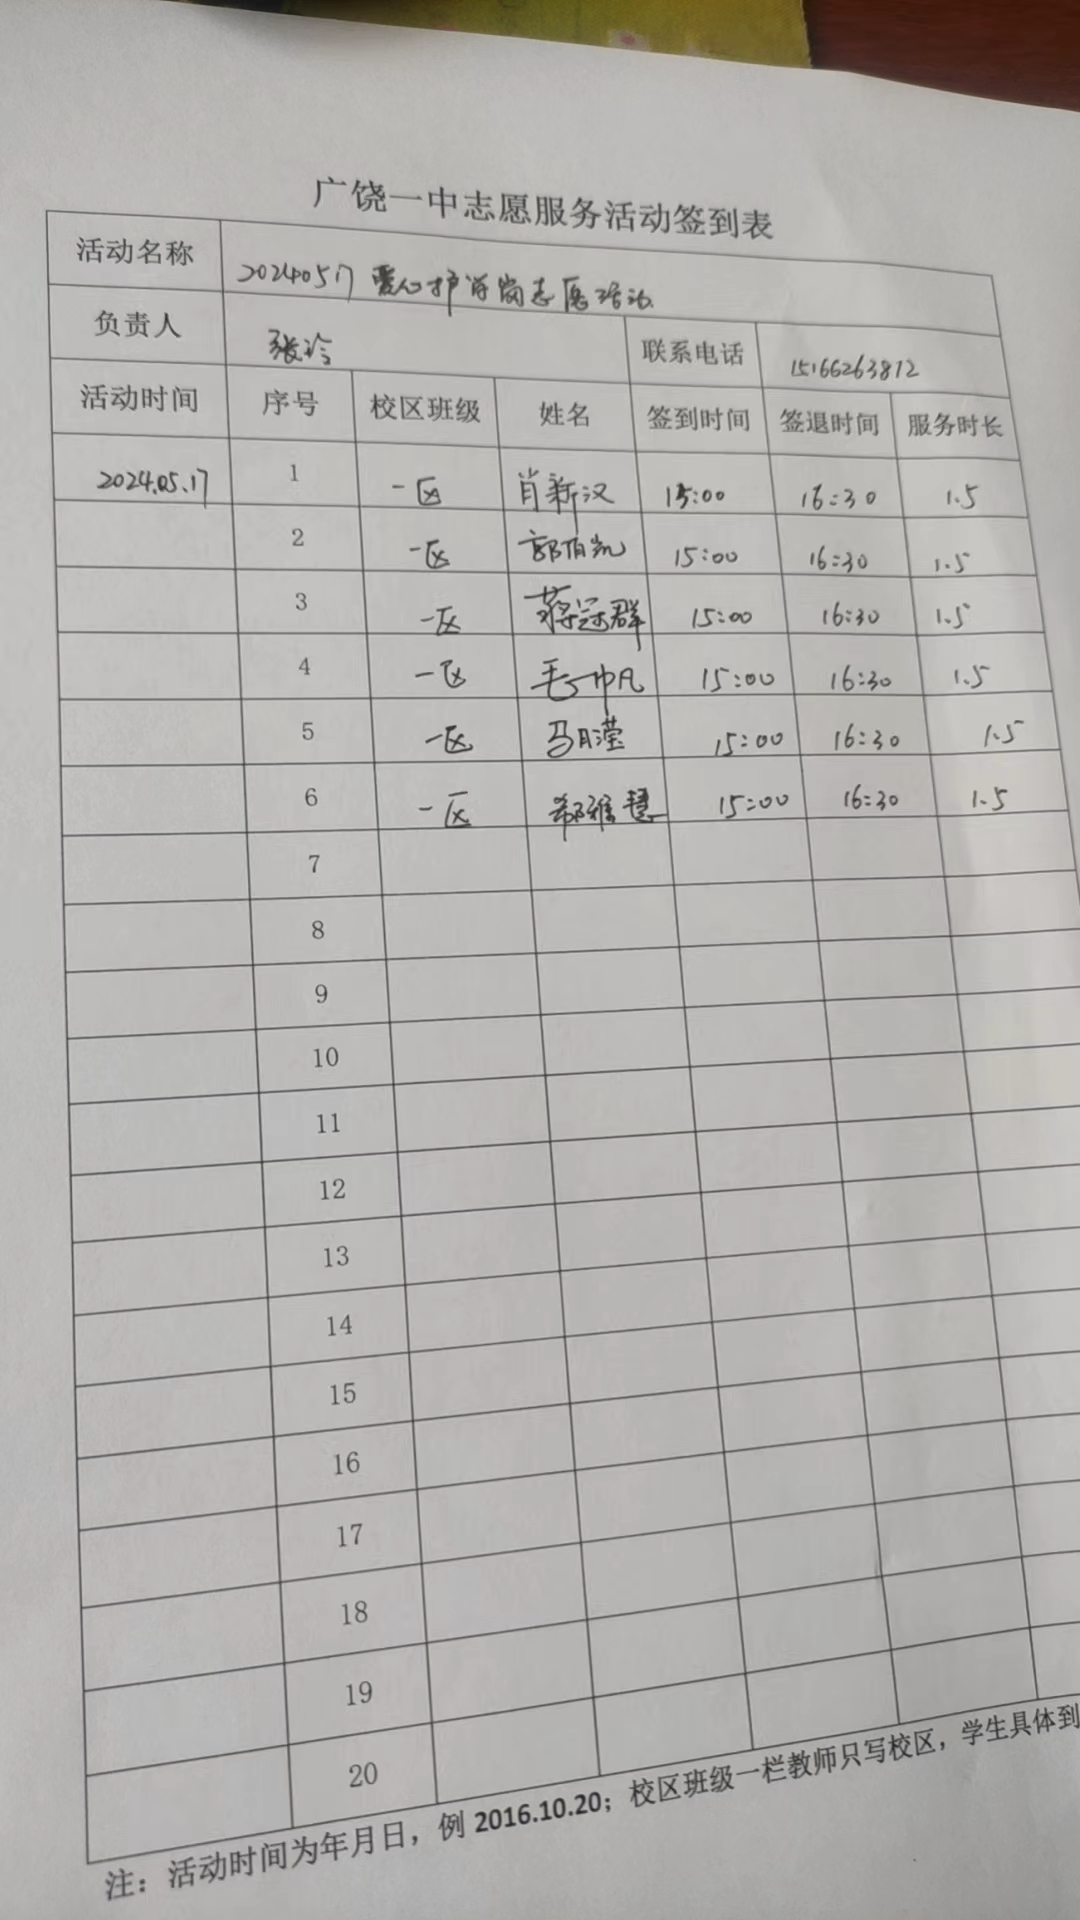 广饶一中志愿服务活动签到表
活动名称 20240517 爱心护学岗志愿活动
负责人 张玲 联系电话 15166263812
活动时间 序号 校区班级 姓名 签到时间 签退时间 服务时长
2024.05.17 1 一区 肖新汉 15:00 16:30 1.5
2 一区 郭伯凯 15:00 16:30 1.5
3 一区 蒋冠群 15:00 16:30 1.5
4 一区 15:00 16:30 1.5
5 一区 马月滢 15:00 16:30 1.5
6 一区 郗雅慧 15:00 16:30 1.5
7
8
9
10
11
12
13
14
15
16
17
18
19
20
注：活动时间为年月日，例 2016.10.20；校区班级一栏教师只写校区，学生具体到